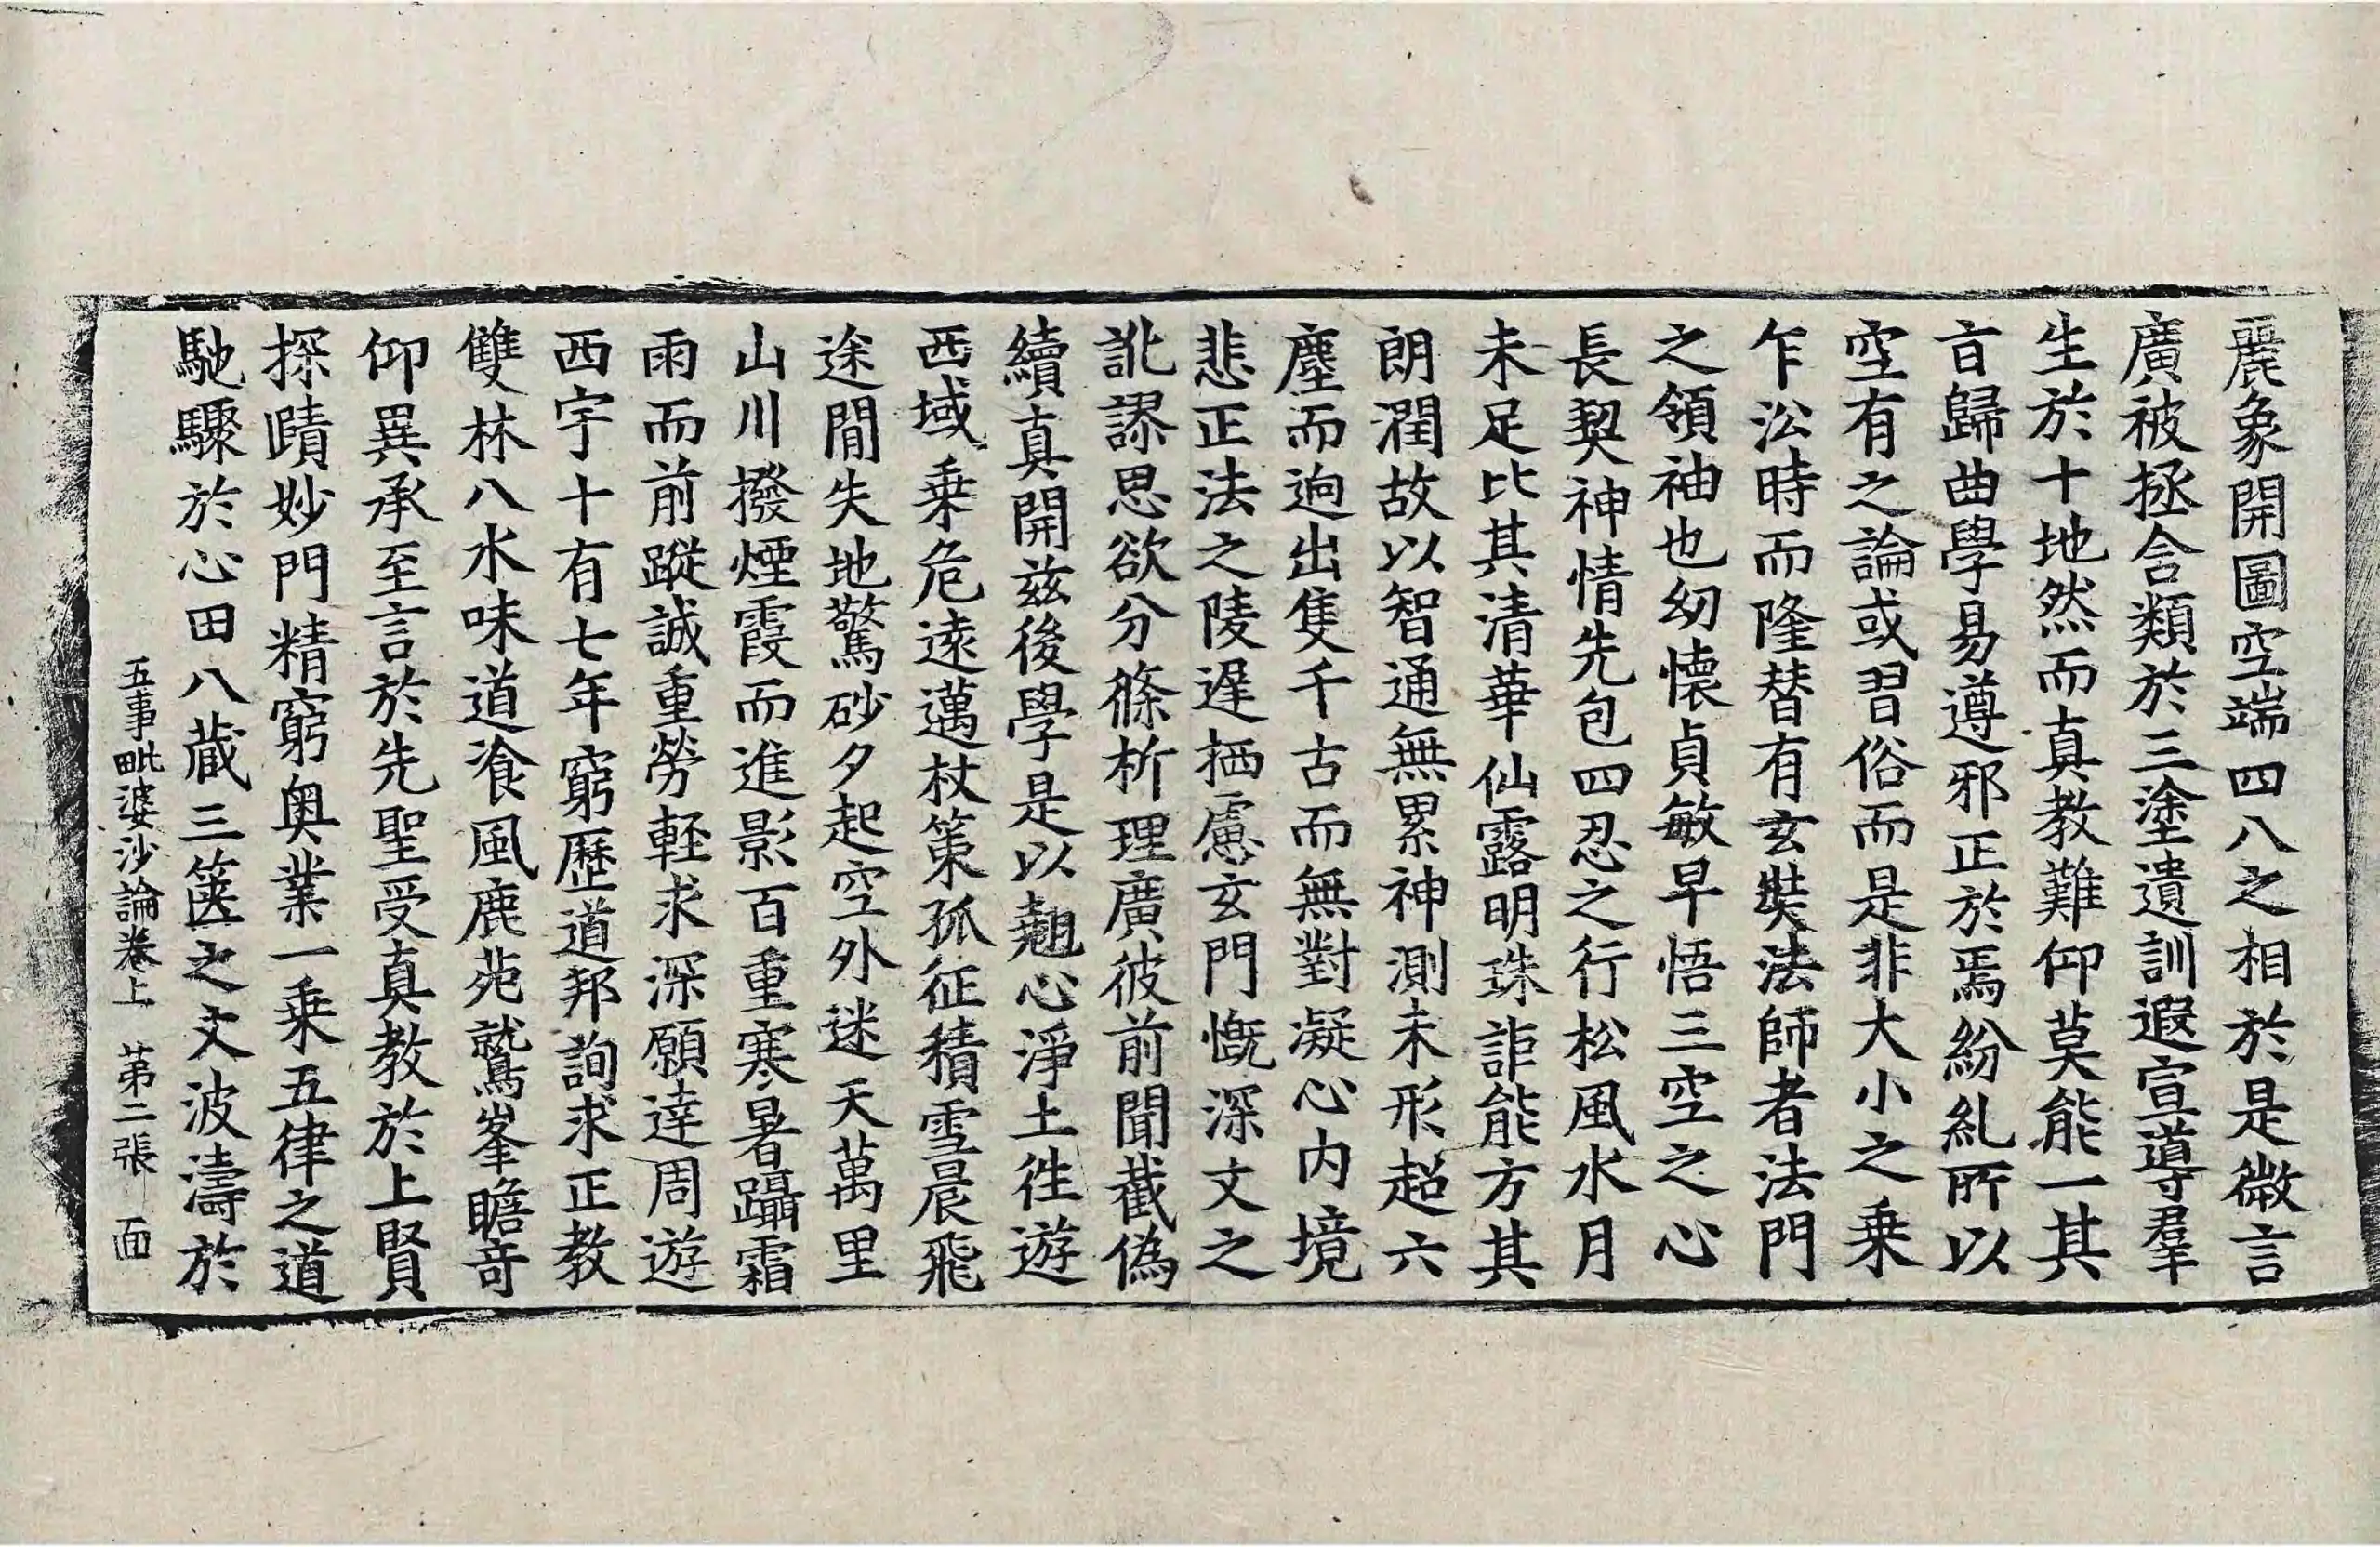 麗象開圖空端四八之相於是微言
廣被拯含類於三塗遺訓遐宣導羣
生於十地然而真教難仰莫能一其
㫖歸曲學易遵邪正於焉紛糺所以
空有之論或習俗而是非大小之乗
乍㳂時而隆替有玄奘法師者法門
之領袖也幼懐貞敏早悟三空之心
長契神情先包四忍之行松風水月
未足比其清華仙露明珠詎能方其
朗潤故以智通無累神測未形超六
塵而逈出隻千古而無對凝心内境
悲正法之陵遅栖慮玄門慨深文之
訛謬思欲分條析理廣彼前聞截偽
續真開兹後學是以翹心淨土徃遊
西域乗危遠邁杖策孤征積雪晨飛
途閒失地驚砂夕起空外迷天萬里
山川撥煙霞而進影百重寒暑躡霜
雨而前蹤誠重勞軽求深願達周遊
西宇十有七年窮歷道邦詢求正教
雙林八水味道飡風鹿苑鷲峯瞻奇
仰異承至言於先聖受真教於上賢
探賾妙門精窮奥業一乗五律之道
馳驟於心田八蔵三篋之文波濤於
五事毗婆沙論卷上 第二張 面